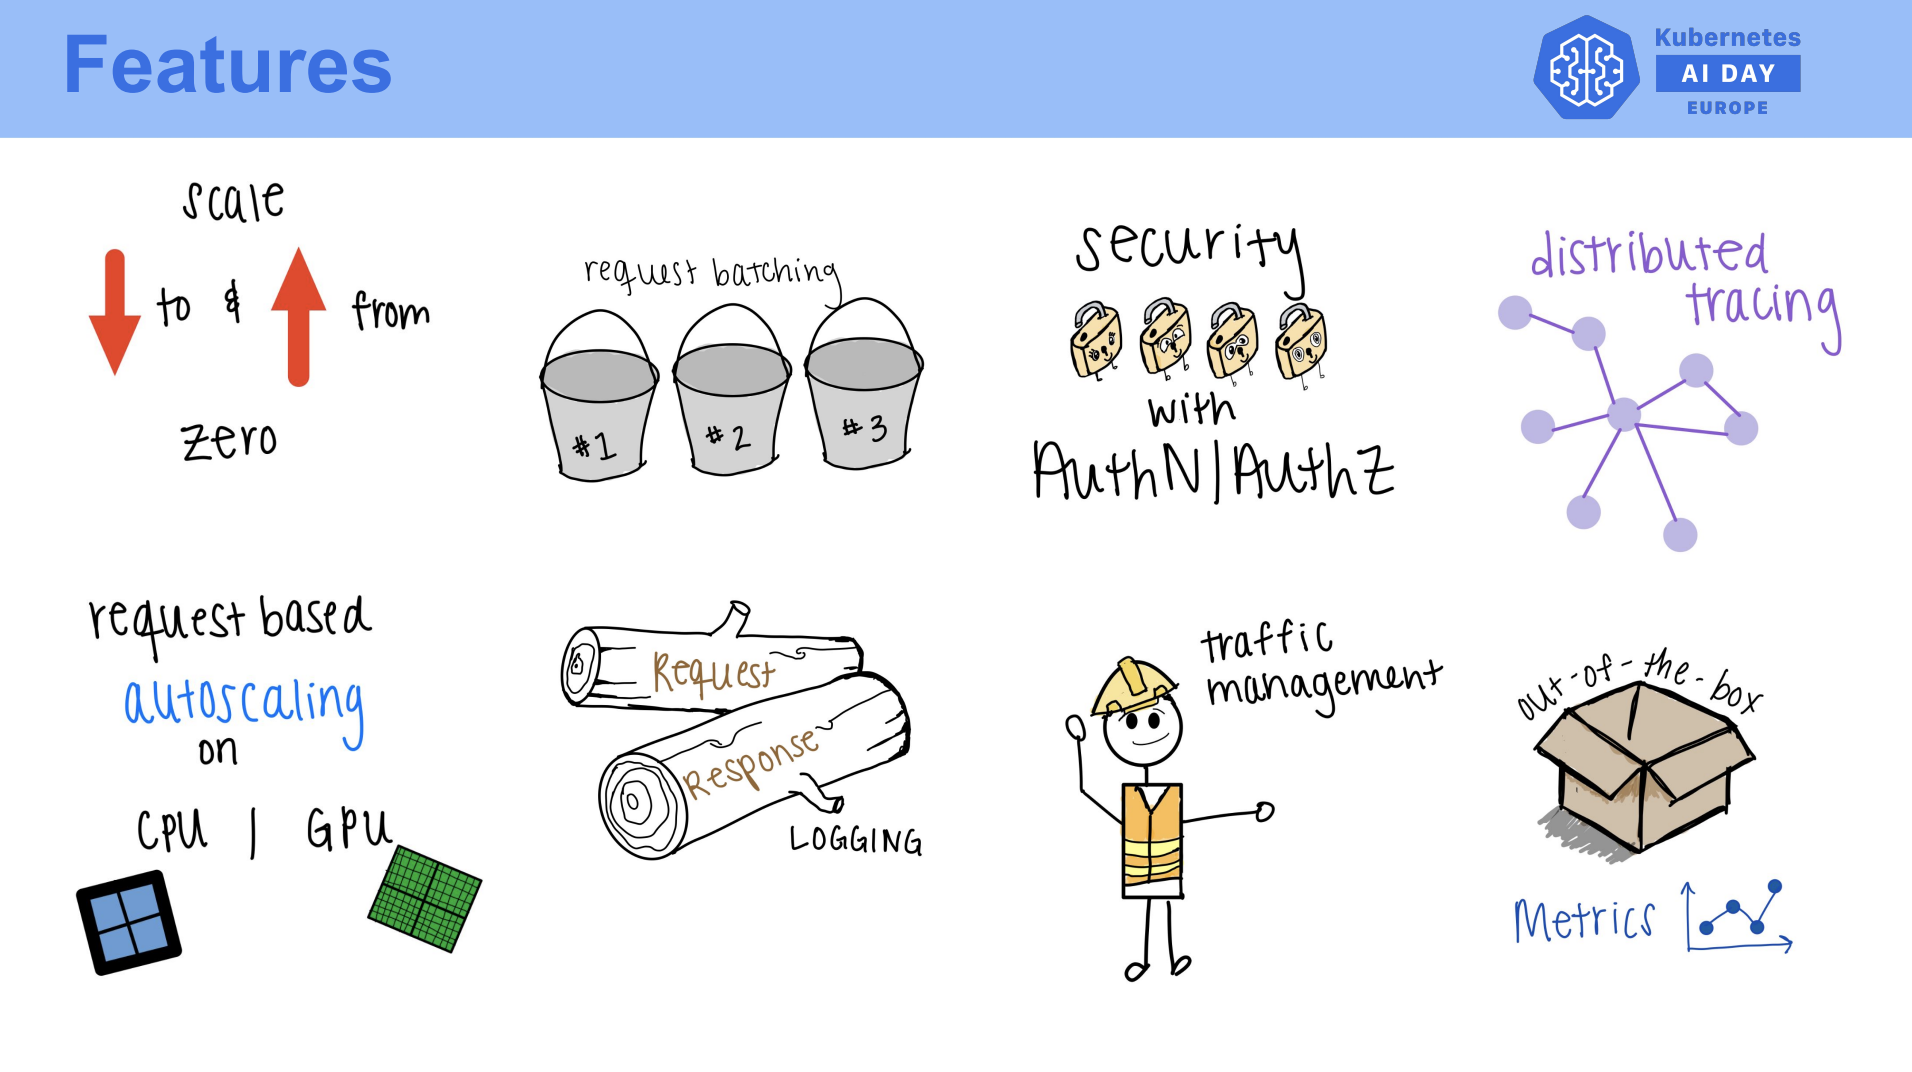 Features
Kubernetes
AI DAY
EUROPE
scale
to & from
zero
request batching
#1 #2 #3
security
with
AuthN|AuthZ
distributed
tracing
request based
autoscaling
on
CPU | GPU
Request
Response
LOGGING
traffic
management
out-of-the-box
Metrics